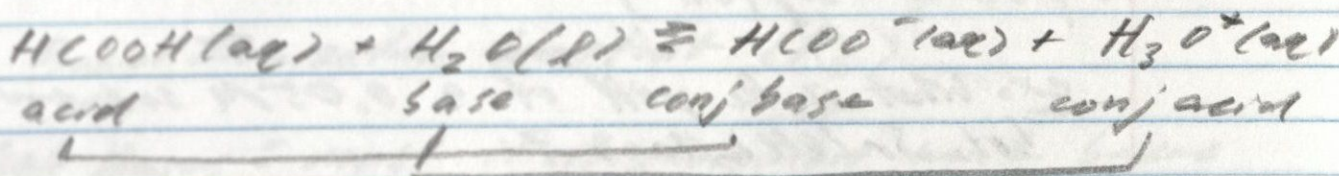 HCOOH(aq) + H₂O(l) ⇌ HCOO⁻(aq) + H₃O⁺(aq)
acid base conj base conj acid